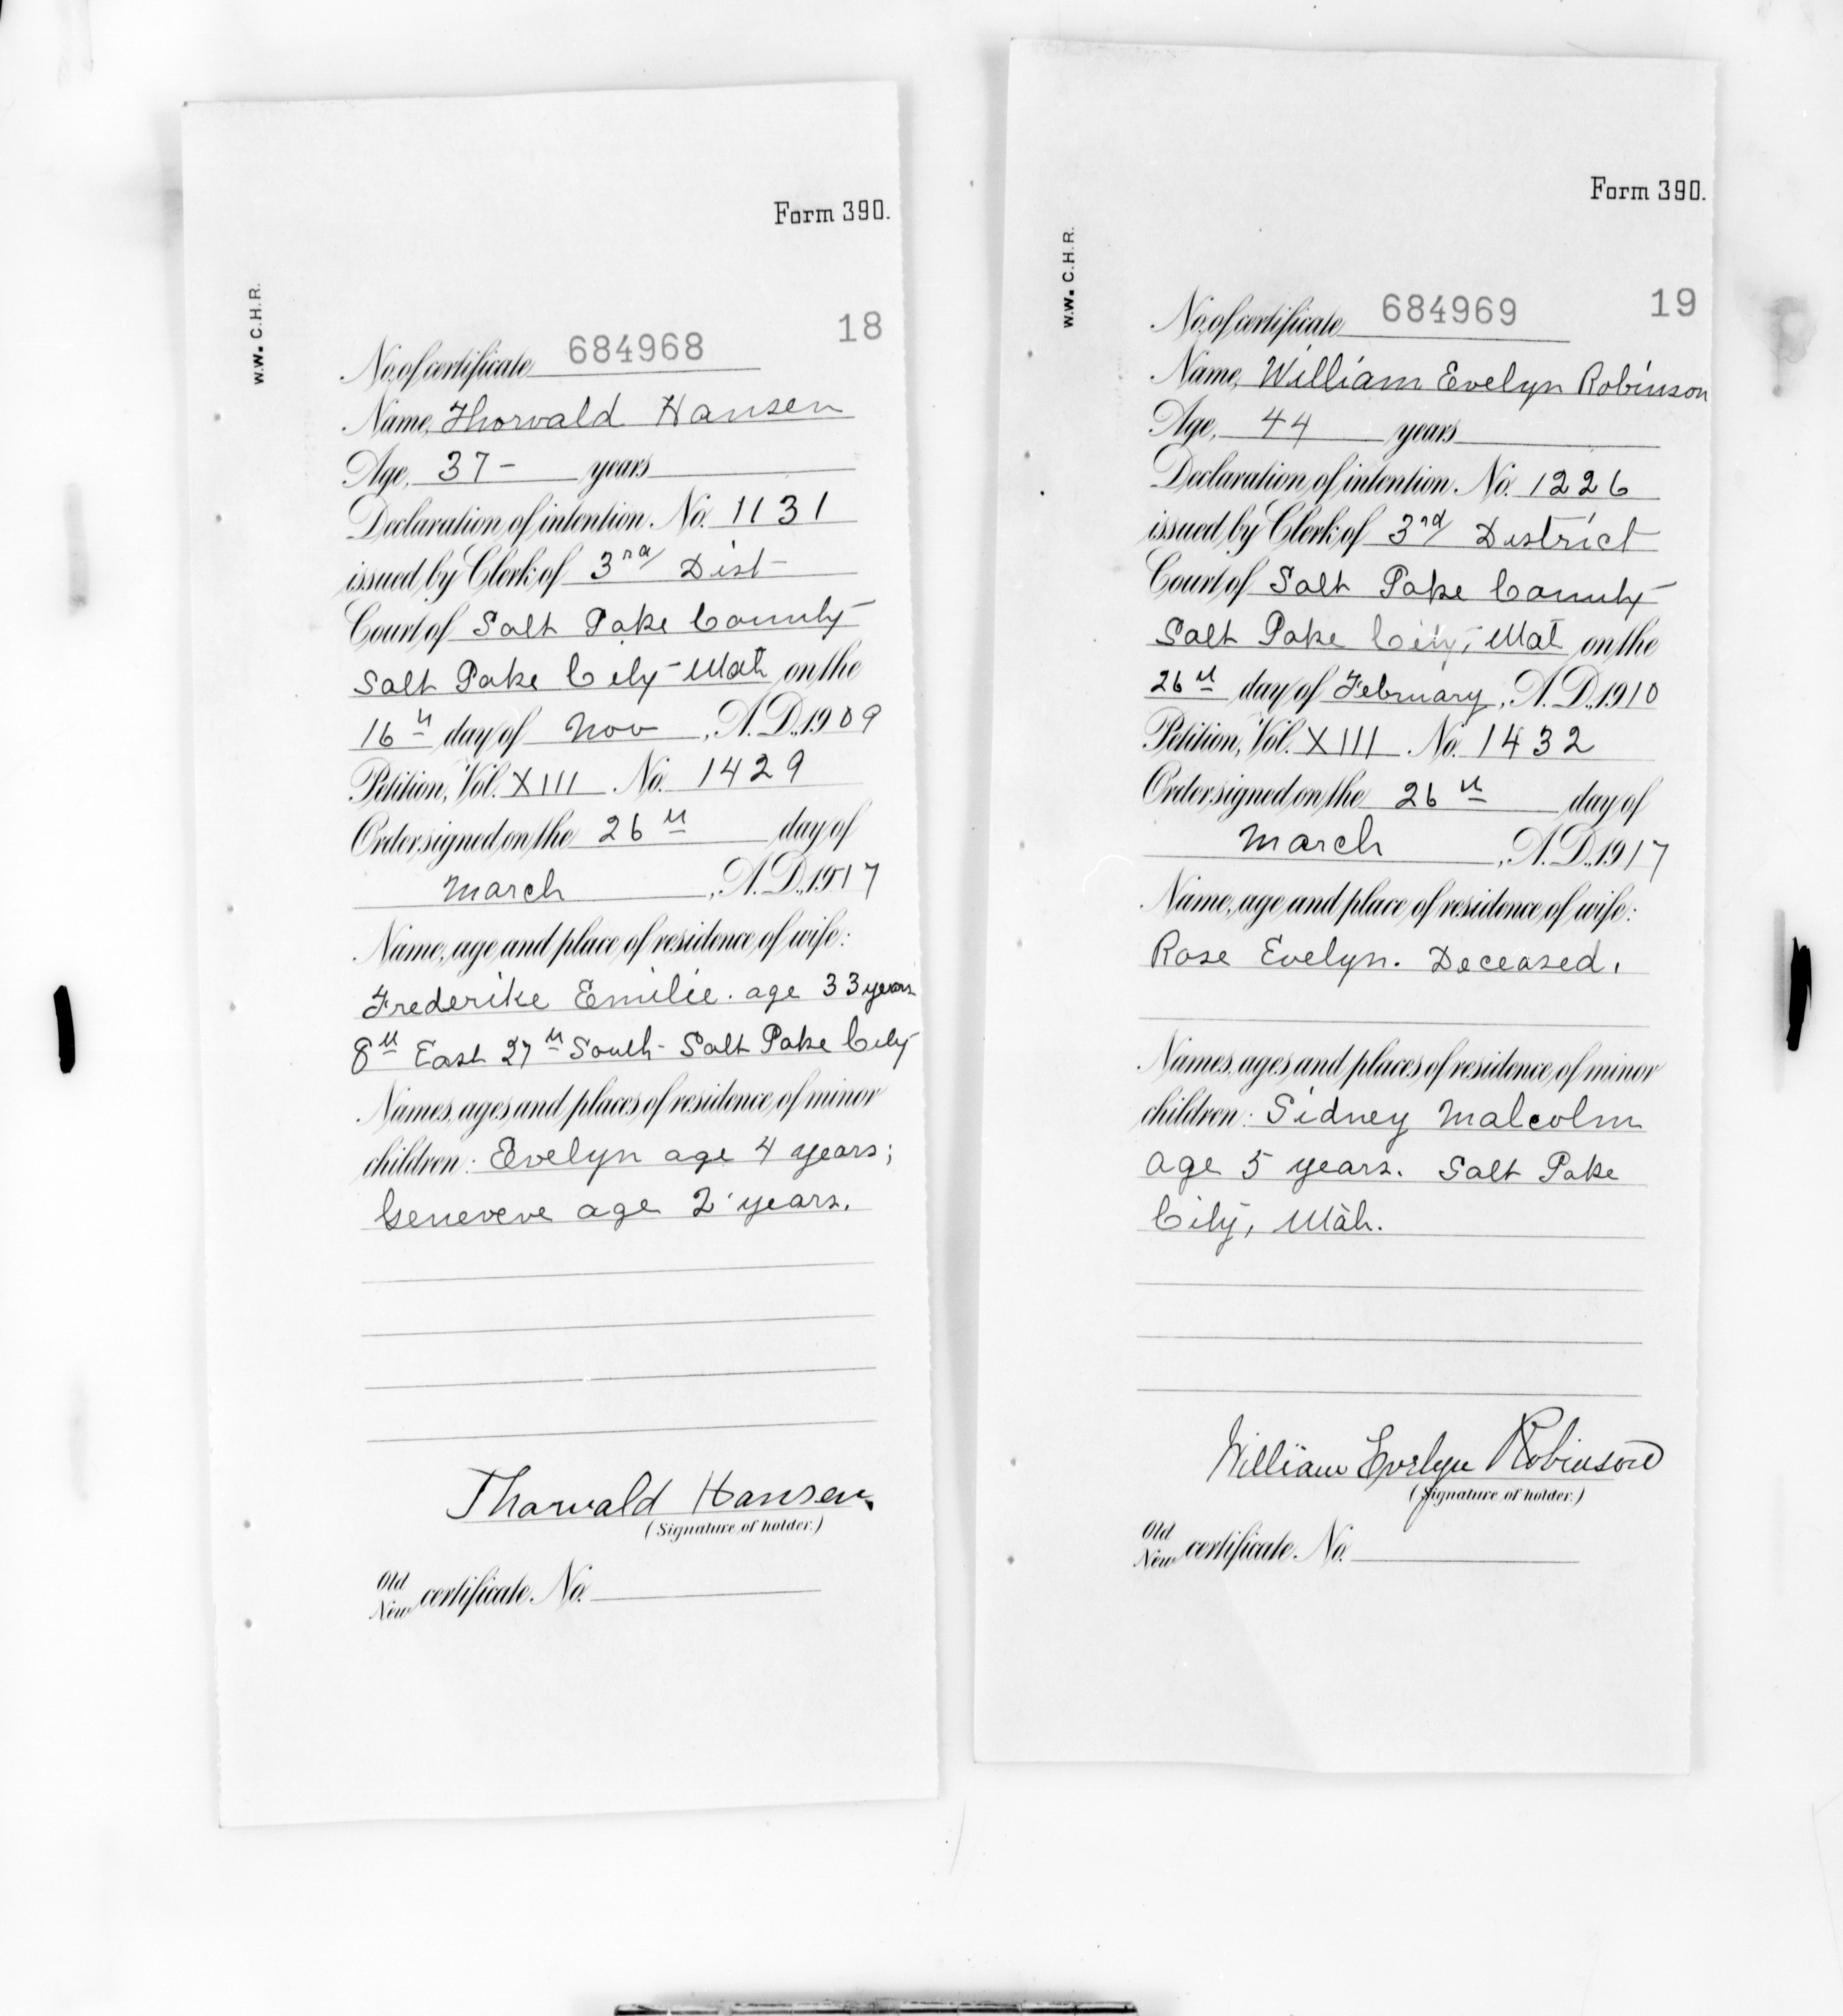 Form 390.
W.W. C.H.R.
18
No. of certificate 684968
Name, Thorvald Hansen
Age, 37 - years
Declaration of intention No. 1131
issued by Clerk of 3rd Dist
Court of Salt Lake County
Salt Lake City - Utah on the
16th day of Nov, A.D. 1909
Petition, Vol. XIII No. 1429
Order signed on the 26th day of
March, A.D. 1917
Name, age and place of residence of wife:
Frederike Emilie. age 33 years
8th East 27th South - Salt Lake City
Names, ages and places of residence of minor
children: Evelyn age 4 years;
Geneveve age 2 years.
Thorvald Hansen
(Signature of holder.)
Old
New certificate No.
Form 390.
W.W. C.H.R.
19
No. of certificate 684969
Name, William Evelyn Robinson
Age, 44 years
Declaration of intention No. 1226
issued by Clerk of 3rd District
Court of Salt Lake County
Salt Lake City, Utah on the
26th day of February, A.D. 1910
Petition, Vol. XIII No. 1432
Order signed on the 26th day of
March, A.D. 1917
Name, age and place of residence of wife:
Rose Evelyn. Deceased.
Names, ages and places of residence of minor
children: Sidney Malcolm
age 5 years. Salt Lake
City, Utah.
William Evelyn Robinson
(Signature of holder.)
Old
New certificate No.